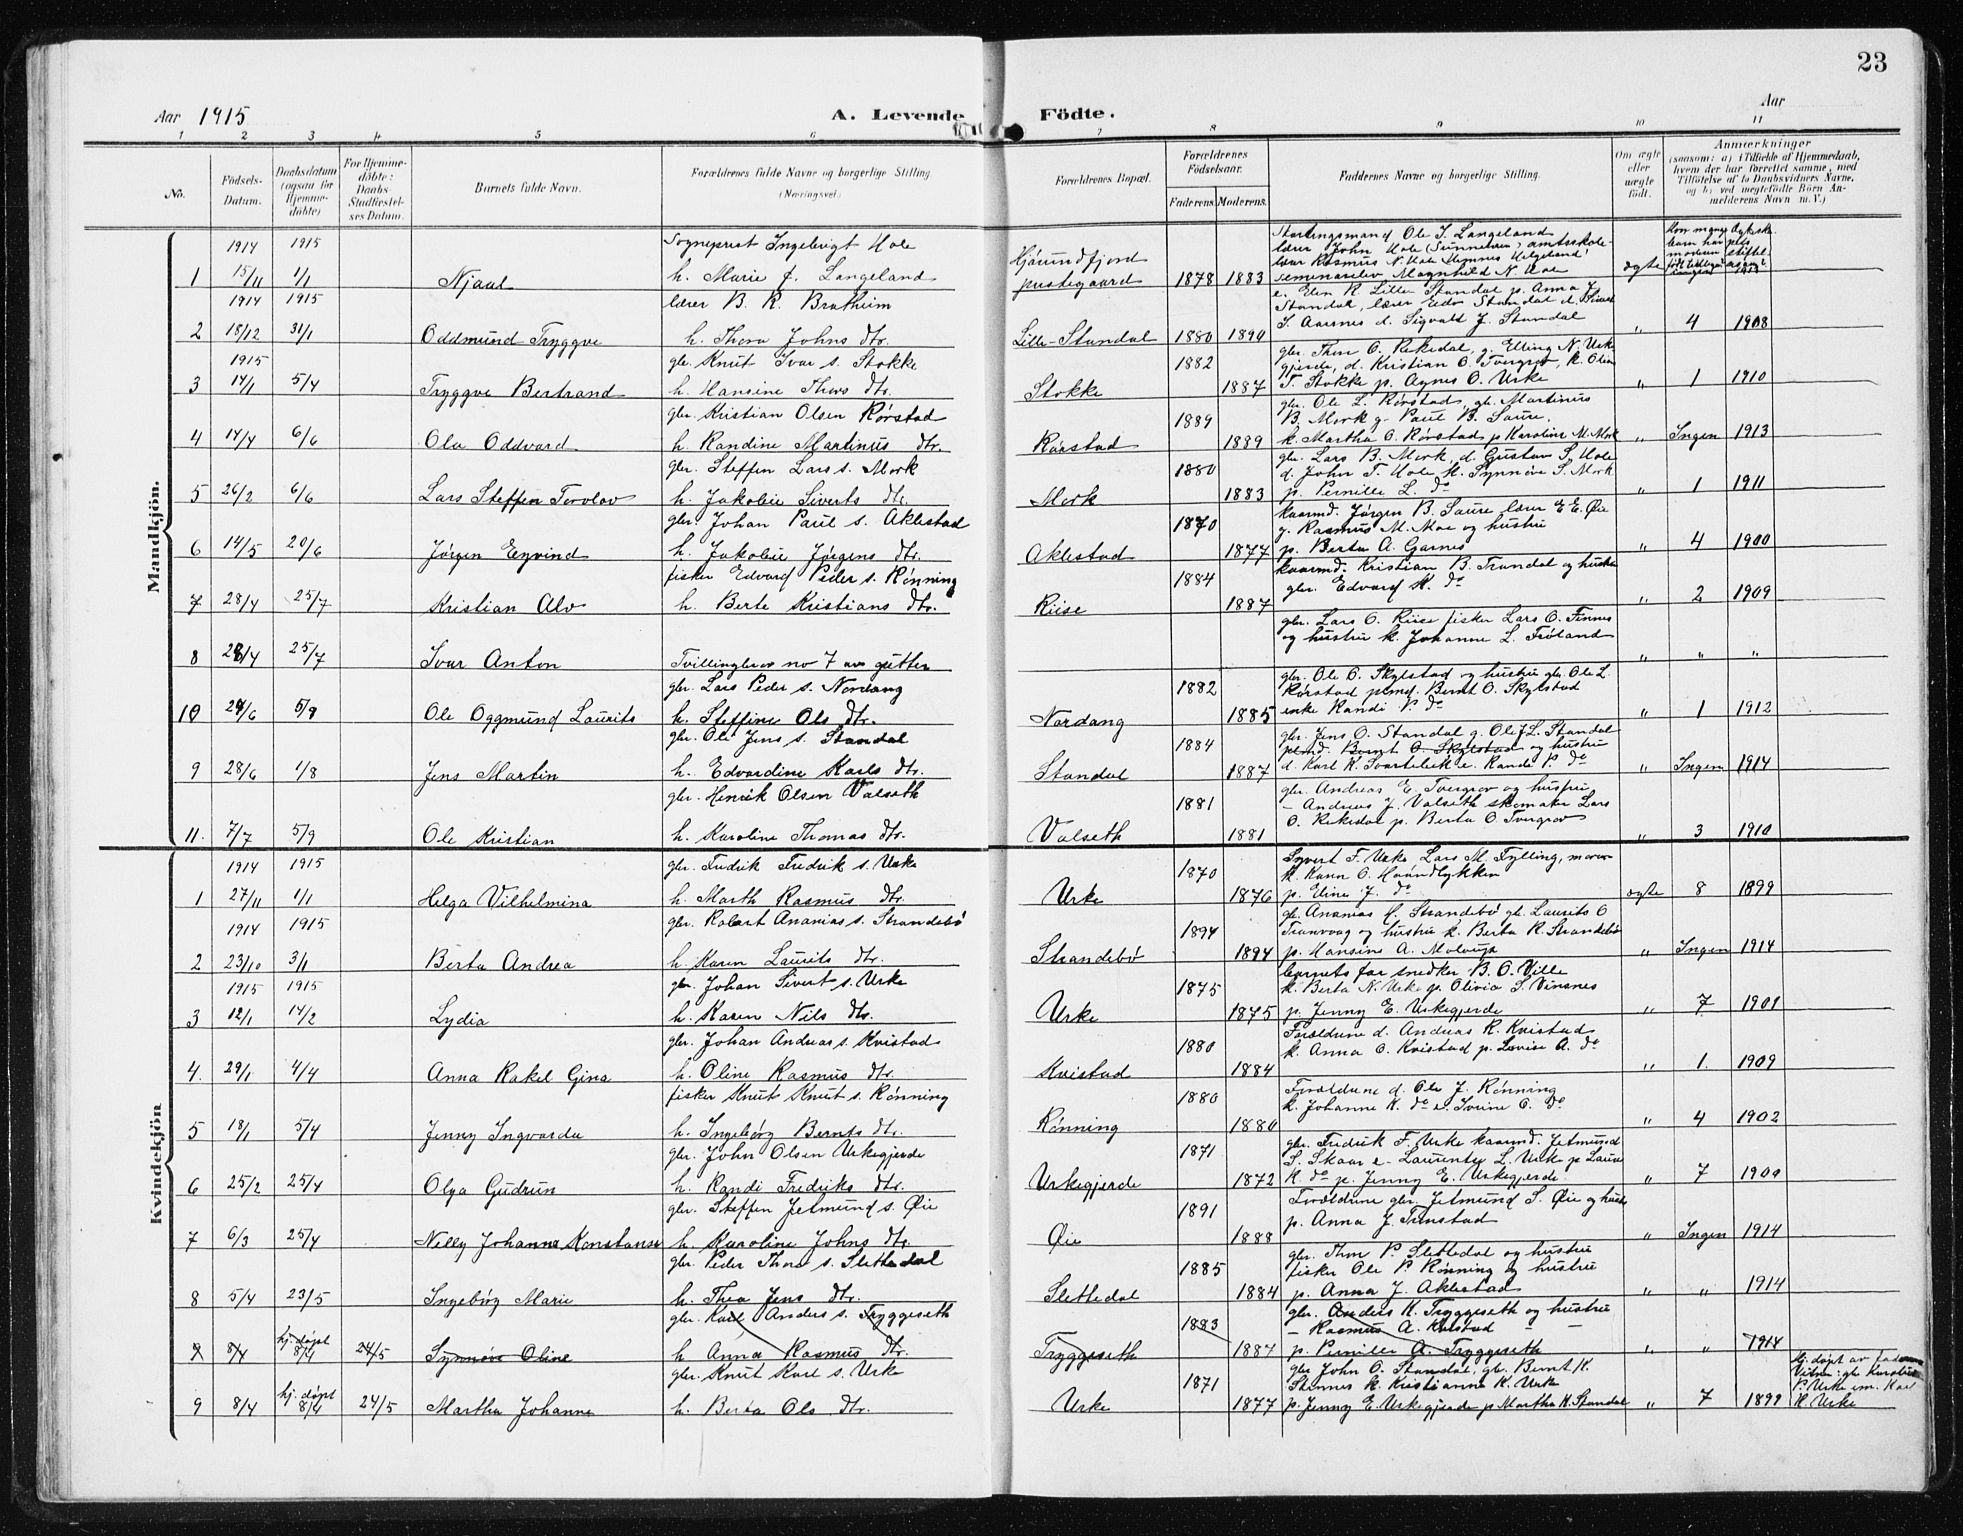 23
Aar 1915
A. Levende Födte.
Aar
1 2 3 4 5 6 7 8 9 10 11
No.
Födsels-Datum.
Daabsdatum (ogsaa for Hjemmedöbte)
For Hjemmedöbte: Daabs-Stadfæstelses Datum.
Barnets fulde Navn.
Forældrenes fulde Navne og borgerlige Stilling. (Næringsvei.)
Forældrenes Bopæl.
Forældrenes Födselsaar.
Faderens. Moderens.
Faddernes Navne og borgerlige Stilling.
Om ægte eller uægte født.
Anmærkninger
(saasom: a) i Tilfælde af Hjemmedaab, hvem der har forrettet samme, med Tilföielse af to Daabsvidners Navne, og b) ved uegtefödte Börn Anmelderens Navn m. V.)
Mandkjön.
1914 1915 Sogneprest Ingebrigt Hole
1 15/11 1/1 Njaal h. Marie f. Langeland Hjørundfjord prestegaard 1878 1883 ægte
Stortingsmand Ole J. Langeland
1914 1915 lærer B. R. Bratheim
2 18/12 31/1 Oddmund Tryggve h. Thora Johns dtr. Lille-Standal 1880 1890 " 4 1908
S. Aarsnes d. Sigvald J. Standal
1915 gbr. Knut Ivar s. Stokke
3 14/1 5/4 Tryggve Bertrand h. Hansine Thors dtr. Stokke 1882 1887 " 1 1910
T. Stokke p. Agnes O. Urke
gbr. Kristian Olsen Rørstad
4 14/4 6/6 Ola Oddvard h. Randine Martinus dtr. Rørstad 1889 1889 " Ingen 1913
gbr. Ole L. Rørstad, gb. Martinus
B. Mork g. Paul B. Saure.
k. Martha O. Rørstad p Karoline M. Mork
gbr. Steffen Lars s. Mork
5 26/2 6/6 Lars Steffen Torolov h. Jakobie Siverts dtr. Mork 1880 1883 " 1 1911
gbr. Lars B. Mork, d. Gustav S. Hole
d. John T. Hole k. Synnøve S. Mork
p. Pernille L. do
gbr. Johan Paul s. Aklestad
6 14/5 20/6 Jørgen Eyvind h. Jakobie Jørgens dtr. Aklestad 1870 1877 " 4 1900
kaarmd. Jørgen B. Saure lærer E. E. Øie
g. Rasmus M. Moe og hustru
p. Berta A. Garnes
fisker Edvard Peder s. Rønning
7 28/4 25/7 Kristian Alv h. Berte Kristians dtr. Riise 1884 1887 " 2 1909
kaarmd. Kristian B. Trandal og hustru
gbr. Edvard K. do
8 28/4 25/7 Ivar Anton Tvillingbror no 7 av gutter " " "
gbr. Lars O. Riise fisker Lars O. Finnes
og hustru k. Johanne L. Frøland
gbr. Lars Peder s. Nordang
10 24/6 5/9 Ole Oggmund Laurits h. Steffine Ols dtr. Nordang 1882 1885 " 1 1912
gbr. Ole O. Skylstad og hustru gb. Ole L.
Rørstad plmd. Bernt O. Skylstad
enke Randi P. do
gbr. Ole Jens s. Standal
9 28/6 1/8 Jens Martin h. Edvardine Karls dtr. Standal 1884 1887 " Ingen 1914
gbr. Jens O. Standal g. Ole J L. Standal
plmd. Bernt O. Skylstad og hustru
d. Karl K. Svartebek e. Randi P. do
gbr. Henrik Olsen Valseth
11. 7/7 5/9 Ole Kristian h. Karoline Thomas dtr. Valseth 1881 1881 " 3 1910
gbr. Andreas E. Tvergrov og hustru
- Andreas J. Valseth skomaker Lars
O. Rekedal p. Berta O Tvergrov
Kvindekjön
1914 1915 gbr. Fredrik Fredrik s. Urke
1 27/11 1/1 Helga Vilhelmina h. Marth Rasmus dtr. Urke 1870 1876 ægte 8 1899
Syvert F. Urke, Lars M. Fylling,
p. Eline J. do
1914 1915 gbr. Robert Ananias s. Strandebø
2 23/10 3/1 Berta Andrea h. Karen Laurits dtr. Strandebø 1894 1894 " Ingen 1914
gb. Ananias K. Strandebø gb. Laurits O
Tranvaag og hustru k. Berta R. Strandebø
p. Hansine A. Molaup
1915 1915 gbr. Johan Sivert s. Urke
3 12/1 14/2 Lydia h. Karen Nils dtr. Urke 1875 1875 " 7 1901
barnets far snedker B. O. Ville
k. Berta N. Urke p. Olivia S. Vinsnes
p. Jenny E. Urkegjerde
gbr. Johan Andreas s. Kvistad
4. 29/1 4/4 Anna Rakel Gina h. Oline Rasmus dtr. Kvistad 1880 1884 " 1. 1909
Forældrene d. Andreas R. Kvistad
k. Anna O. Kvistad p. Lovise A. do
fisker Knut Knut s. Rønning
5 18/1 5/4 Jenny Ingvarda h. Ingebørg Bernts dtr. Rønning 1880 1880 " 4 1902
Forældrene d. Ole J. Rønning
k. Johanne K. do e. Ivrine O. do
gbr. John Olsen Urkegjerde
6 25/2 25/4 Olga Gudrun h. Randi Fredriks dtr. Urkegjerde 1871 1872 " 7 1900
gbr. Fredrik F. Urke kaarmd. Jetmund
S. Skaar e. Laurentse L. Urke p Laura
K. do p. Jenny E. Urkegjerde
gbr. Steffen Jetmund s. Øie
7 6/3 25/4 Nelly Johanna Konstanse h. Karoline Johns dtr. Øie 1891 1888 " Ingen 1914
Forældrene gbr. Jetmund S. Øie og hustru
p. Anna J. Tronstad
gbr. Peder Thore s. Slettedal
8 5/4 23/5 Ingebörg Marie h. Thea Jens dtr. Slettedal 1885 1884 " " 1914
gbr. Thor P. Slettedal og hustru
fisker Ole P. Rønning og hustru
p. Anna J. Aklestad
gbr. Karl Anders s. Tryggeseth
9 8/4 hj. døpt 8/4 24/5 Synnøve Oline h Anna Rasmus dtr. Tryggeseth 1883 1887 " " 1914
gbr. Anders K. Tryggeseth og hustru
- Rasmus A. Kolstad - -
p. Pernille A. Tryggeseth
gbr. Knut Karl s. Urke
9 8/4 hj. døpt 8/4 24/5 Martha Johanne h. Berta Ols dtr. Urke 1871 1877 " 7 1899
gbr John O. Standal, gb. Bernt K.
Stennes k. Kristianne K. Urke
p. Jenny E. Urkegjerde p Martha K. Standal
hj. døpt av faderen
Vitner: gbr Karolius
P. Urke em. Karl
K. Urke